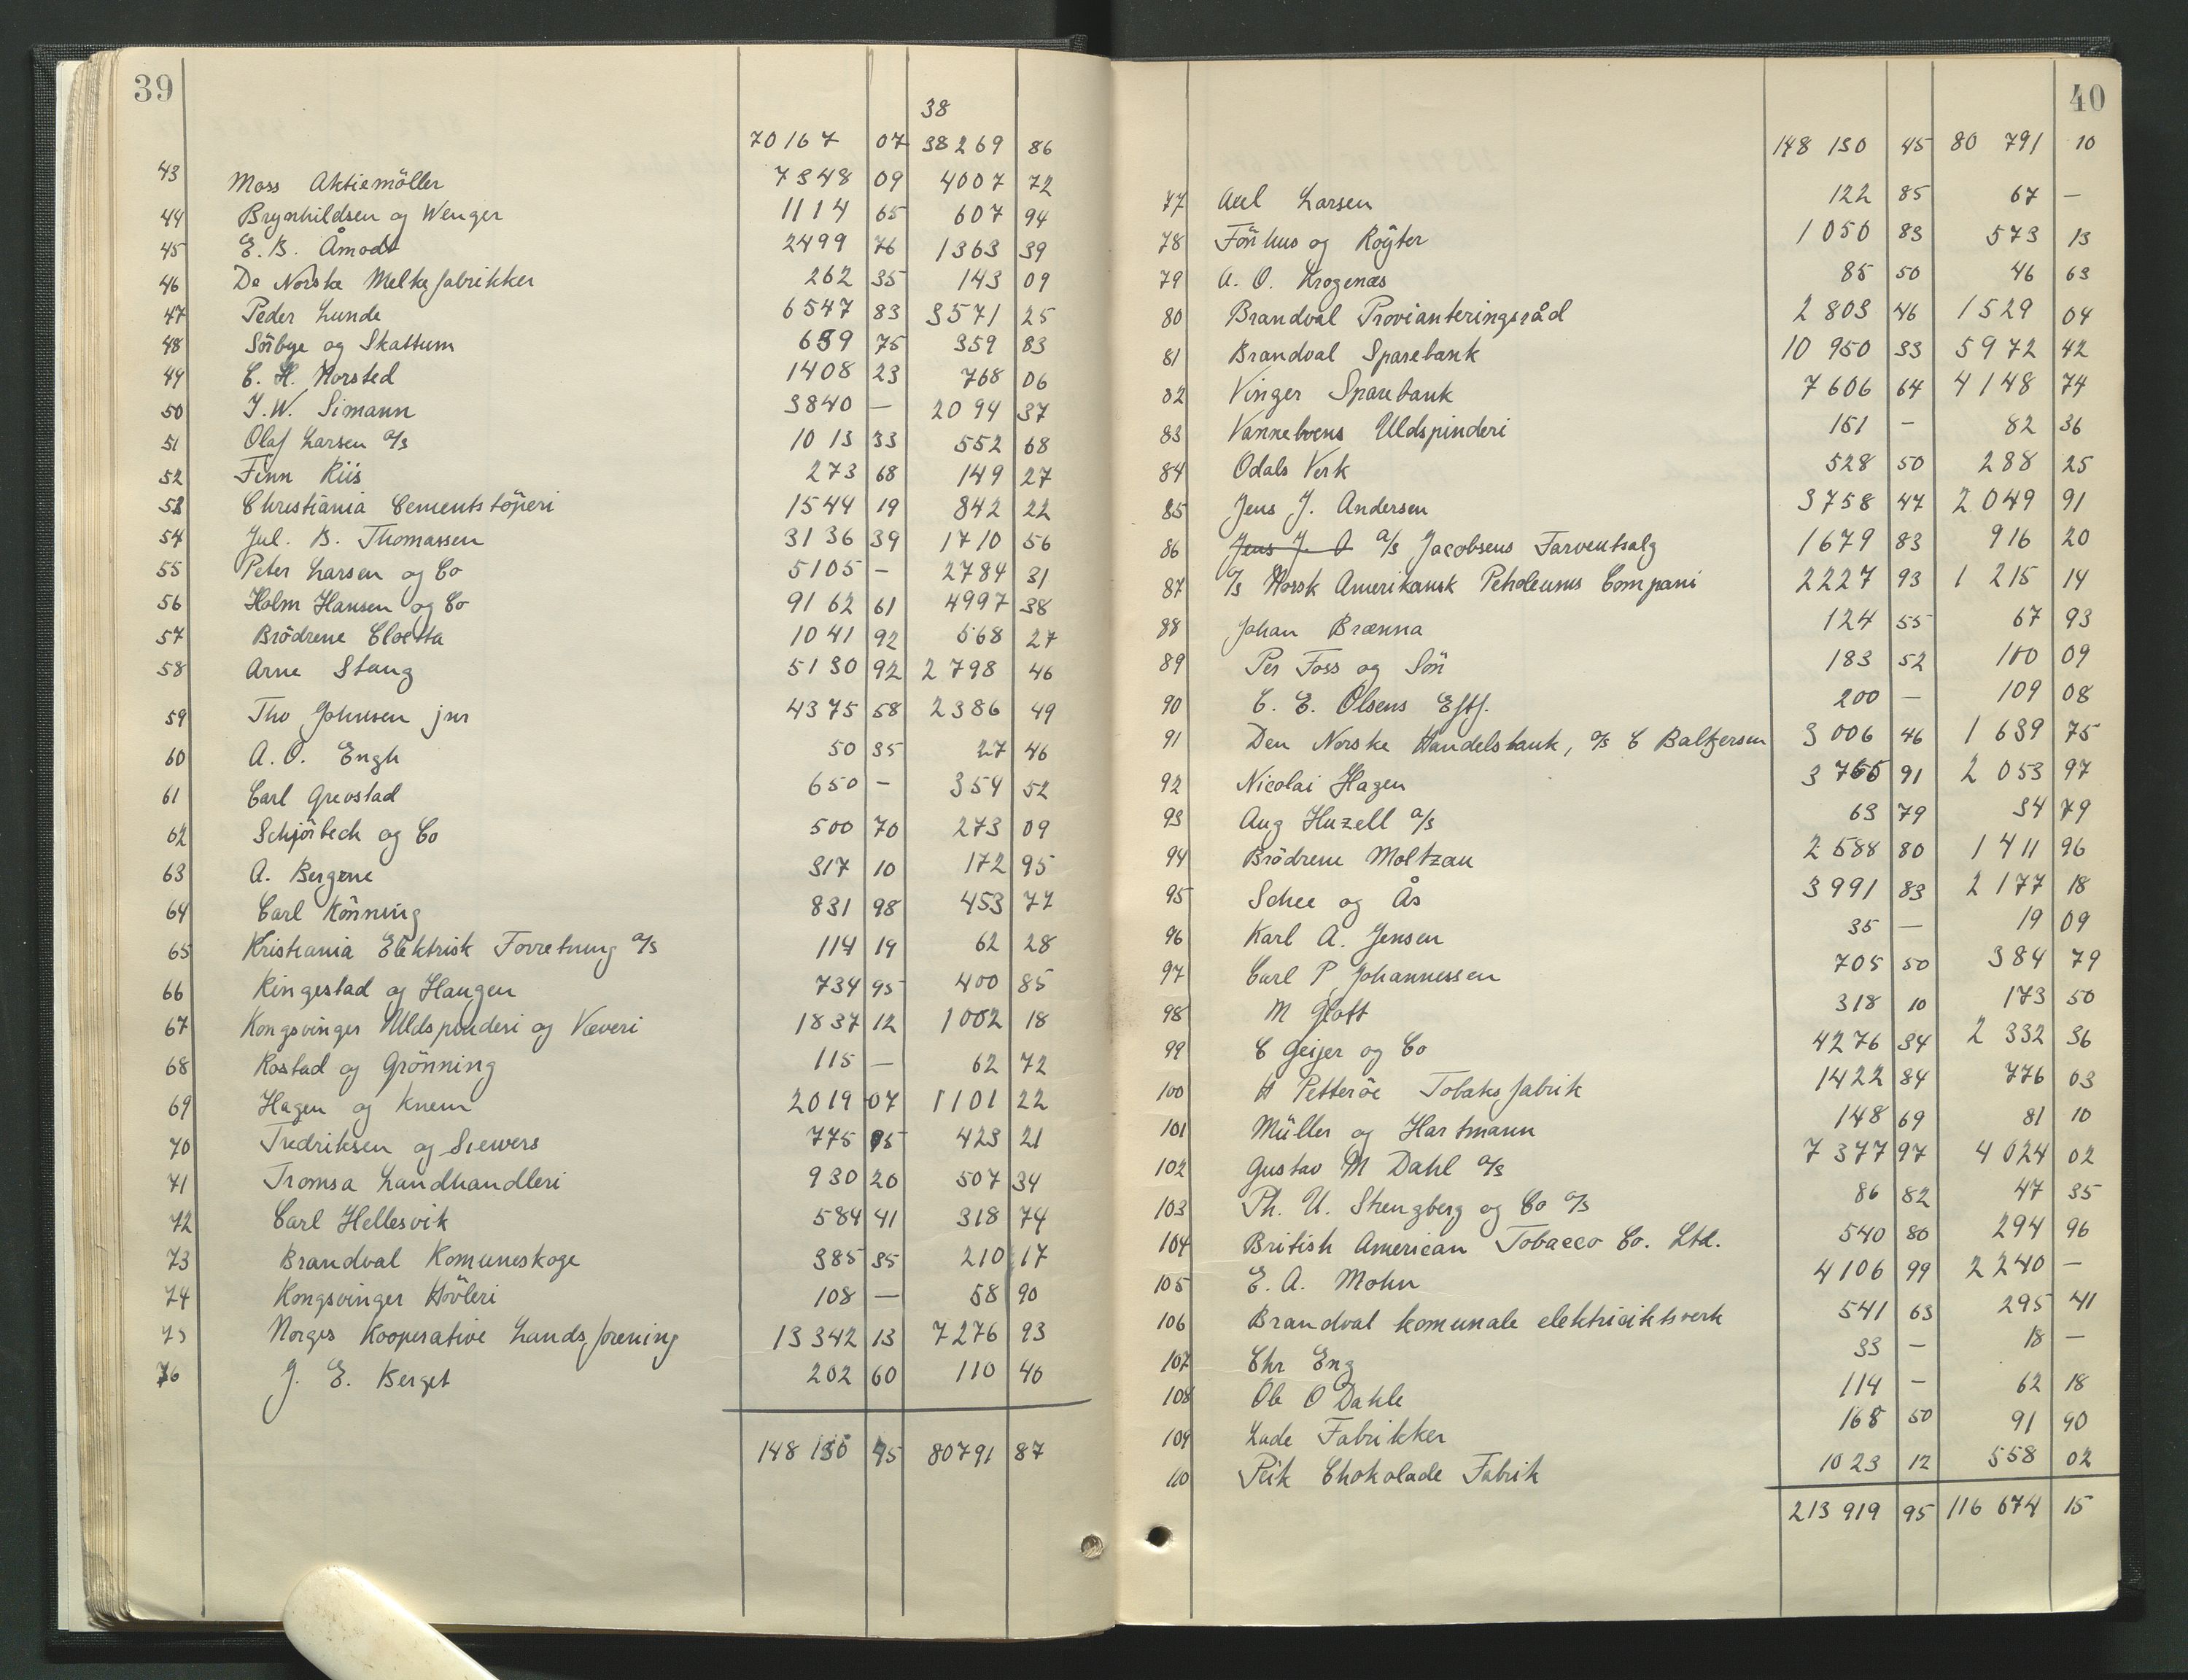 39
38
70167 07 38269 86
43 Moss Aktiemöller 7348 09 4007 72
44 Brynhildsen og Wenger 1114 65 607 94
45 E. B. Åmodt 2499 76 1363 39
46 De Norske Melkefabrikker 262 35 143 09
47 Peder Lunde 6547 83 3571 25
48 Sörbye og Skattum 659 75 359 83
49 C. H. Norsted 1408 23 768 06
50 J. W. Simann 3840 — 2094 37
51 Olaf Larsen a/s 1013 33 552 68
52 Finn Riis 273 68 149 27
53 Christiania Cementstöperi 1544 19 842 22
54 Jul. B. Thomassen 3136 39 1710 56
55 Peter Larsen og Co 5105 — 2784 31
56 Holm Hansen og Co 9162 61 4997 38
57 Brödrene Cloetta 1041 92 568 27
58 Arne Stang 5130 92 2798 46
59 Tho Johnsen jnr 4375 58 2386 49
60 A. O. Engh 50 35 27 46
61 Carl Grevstad 650 — 354 52
62 Schjörbeck og Co 500 70 273 09
63 A. Bergene 317 10 172 95
64 Carl Könning 831 98 453 77
65 Kristiania Elektrisk Forretning a/s 114 19 62 28
66 Ringestad og Haugen 734 95 400 85
67 Kongsvinger Uldspinderi og Væveri 1837 12 1002 18
68 Rostad og Grönning 115 — 62 72
69 Hagen og Knem 2019 07 1101 22
70 Fredriksen og Siewers 775 95 423 21
71 Tromsa Landhandleri 930 20 507 34
72 Carl Hellesvik 584 41 318 74
73 Brandval Komuneskoge 385 35 210 17
74 Kongsvinger Hövleri 108 — 58 90
75 Norges Kooperative Landsforening 13342 13 7276 93
76 J. E. Berget 202 60 110 40
148 130 45 80791 87
40
148 130 45 80 791 10
77 Axel Larsen 122 85 67 —
78 Fönhus og Röyter 1050 83 573 13
79 A. O. Krogenæs 85 50 46 63
80 Brandval Provianteringsråd 2 803 46 1529 04
81 Brandval Sparebank 10 950 33 5972 42
82 Vinger Sparebank 7606 64 4148 74
83 Vannebvens Uldspinderi 151 — 82 36
84 Odals Verk 528 50 288 25
85 Jens J. Andersen 3758 47 2 049 91
86 Jens J. A a/s Jacobsens Farveutsalg 1679 83 916 20
87 a/s Norsk Amerikansk Petroleums Compani 2227 93 1 215 14
88 Johan Brænna 124 55 67 93
89 Per Foss og Sön 183 52 100 09
90 C. E. Olsens Eftf. 200 — 109 08
91 Den Norske Handelsbank, a/s C Baltzersen 3 006 46 1 639 75
92 Nicolai Hagen 3 765 91 2 053 97
93 Aug Huzell a/s 63 79 34 79
94 Brödrene Moltzau 2 588 80 1 411 96
95 Schee og Ås 3991 83 2 177 18
96 Karl A. Jensen 35 — 19 09
97 Carl P. Johannessen 705 50 384 79
98 M Glott 318 10 173 50
99 C Geijer og Co 4276 34 2 332 36
100 H Petteröe Tobaksfabrik 1422 84 776 03
101 Müller og Hartmann 148 69 81 10
102 Gustav M Dahl a/s 7 377 97 4 024 02
103 Ph. U. Strengberg og Co a/s 86 82 47 35
104 British American Tobacco Co. Ltd. 540 80 294 96
105 E. A. Mohn 4106 99 2 240 —
106 Brandval komunale elektricitetsverk 541 63 295 41
107 Chr Eng 33 — 18 —
108 Ole O Dahle 114 — 62 18
109 Lade Fabrikker 168 50 91 90
110 Peik Chokolade Fabrik 1023 12 558 02
213 919 95 116 674 15